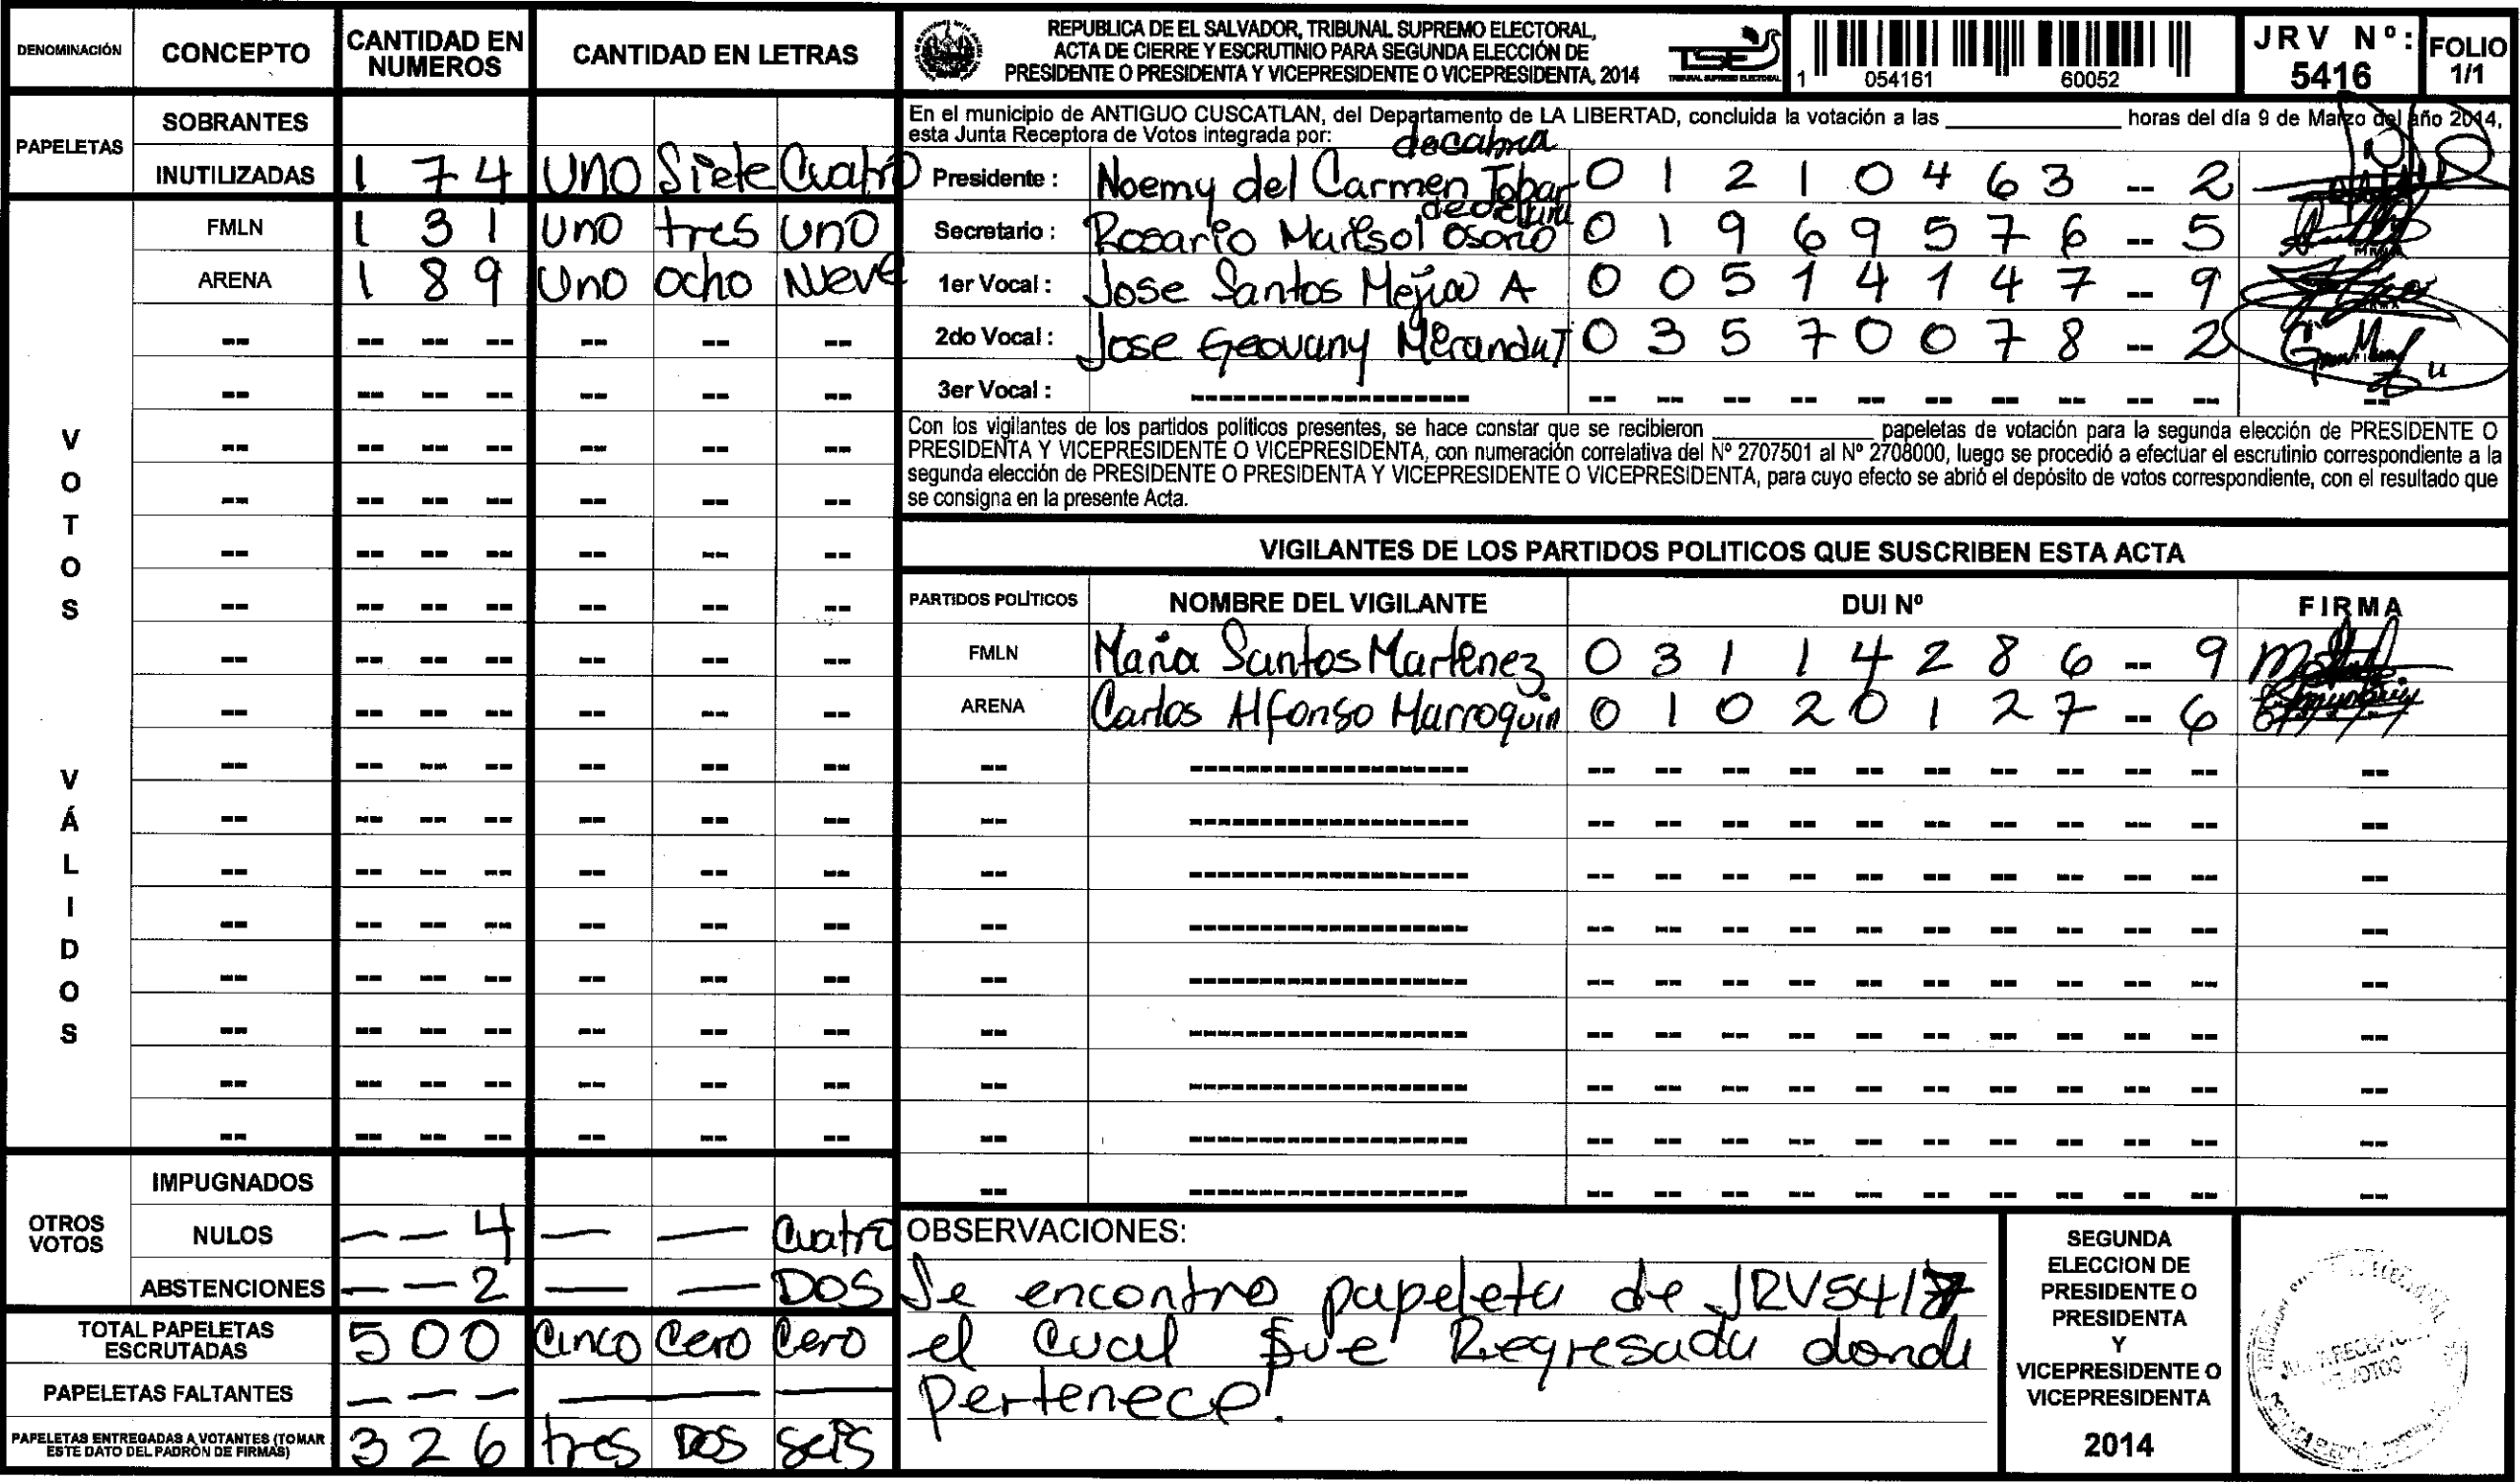 DENOMINACIÓN CONCEPTO CANTIDAD EN NUMEROS CANTIDAD EN LETRAS
PAPELETAS
SOBRANTES
INUTILIZADAS 1 7 4 UNO Siete Cuatro
VOTOS VÁLIDOS
FMLN 1 3 1 Uno tres Uno
ARENA 1 8 9 Uno ocho Nueve
OTROS VOTOS
IMPUGNADOS
NULOS — — 4 — — Cuatro
ABSTENCIONES — — 2 — — DOS
TOTAL PAPELETAS ESCRUTADAS 5 0 0 Cinco Cero Cero
PAPELETAS FALTANTES — — — — — —
PAPELETAS ENTREGADAS A VOTANTES (TOMAR ESTE DATO DEL PADRÓN DE FIRMAS) 3 2 6 tres DOS seis
REPUBLICA DE EL SALVADOR, TRIBUNAL SUPREMO ELECTORAL,
ACTA DE CIERRE Y ESCRUTINIO PARA SEGUNDA ELECCIÓN DE
PRESIDENTE O PRESIDENTA Y VICEPRESIDENTE O VICEPRESIDENTA, 2014
TSE
TRIBUNAL SUPREMO ELECTORAL
1 054161 60052
JRV Nº: 5416
FOLIO 1/1
En el municipio de ANTIGUO CUSCATLAN, del Departamento de LA LIBERTAD, concluida la votación a las ____ horas del día 9 de Marzo del año 2014,
esta Junta Receptora de Votos integrada por:
Presidente : Noemy del Carmen Tobar 0 1 2 1 0 4 6 3 -- 2
Secretario : Rosario Marisol Osorio 0 1 9 6 9 5 7 6 -- 5
1er Vocal : Jose Santos Mejia A 0 0 5 1 4 1 4 7 -- 9
2do Vocal : Jose Geovany Miranda T 0 3 5 7 0 0 7 8 -- 2
3er Vocal :
Con los vigilantes de los partidos políticos presentes, se hace constar que se recibieron ____ papeletas de votación para la segunda elección de PRESIDENTE O
PRESIDENTA Y VICEPRESIDENTE O VICEPRESIDENTA, con numeración correlativa del Nº 2707501 al Nº 2708000, luego se procedió a efectuar el escrutinio correspondiente a la
segunda elección de PRESIDENTE O PRESIDENTA Y VICEPRESIDENTE O VICEPRESIDENTA, para cuyo efecto se abrió el depósito de votos correspondiente, con el resultado que
se consigna en la presente Acta.
VIGILANTES DE LOS PARTIDOS POLITICOS QUE SUSCRIBEN ESTA ACTA
PARTIDOS POLÍTICOS NOMBRE DEL VIGILANTE DUI Nº FIRMA
FMLN Maria Santos Martinez 0 3 1 1 4 2 8 6 -- 9
ARENA Carlos Alfonso Marroquin 0 1 0 2 0 1 2 7 -- 6
OBSERVACIONES:
Se encontro papeleta de JRV5417
el cual fue Regresada donde
pertenece.
SEGUNDA
ELECCION DE
PRESIDENTE O
PRESIDENTA
Y
VICEPRESIDENTE O
VICEPRESIDENTA
2014